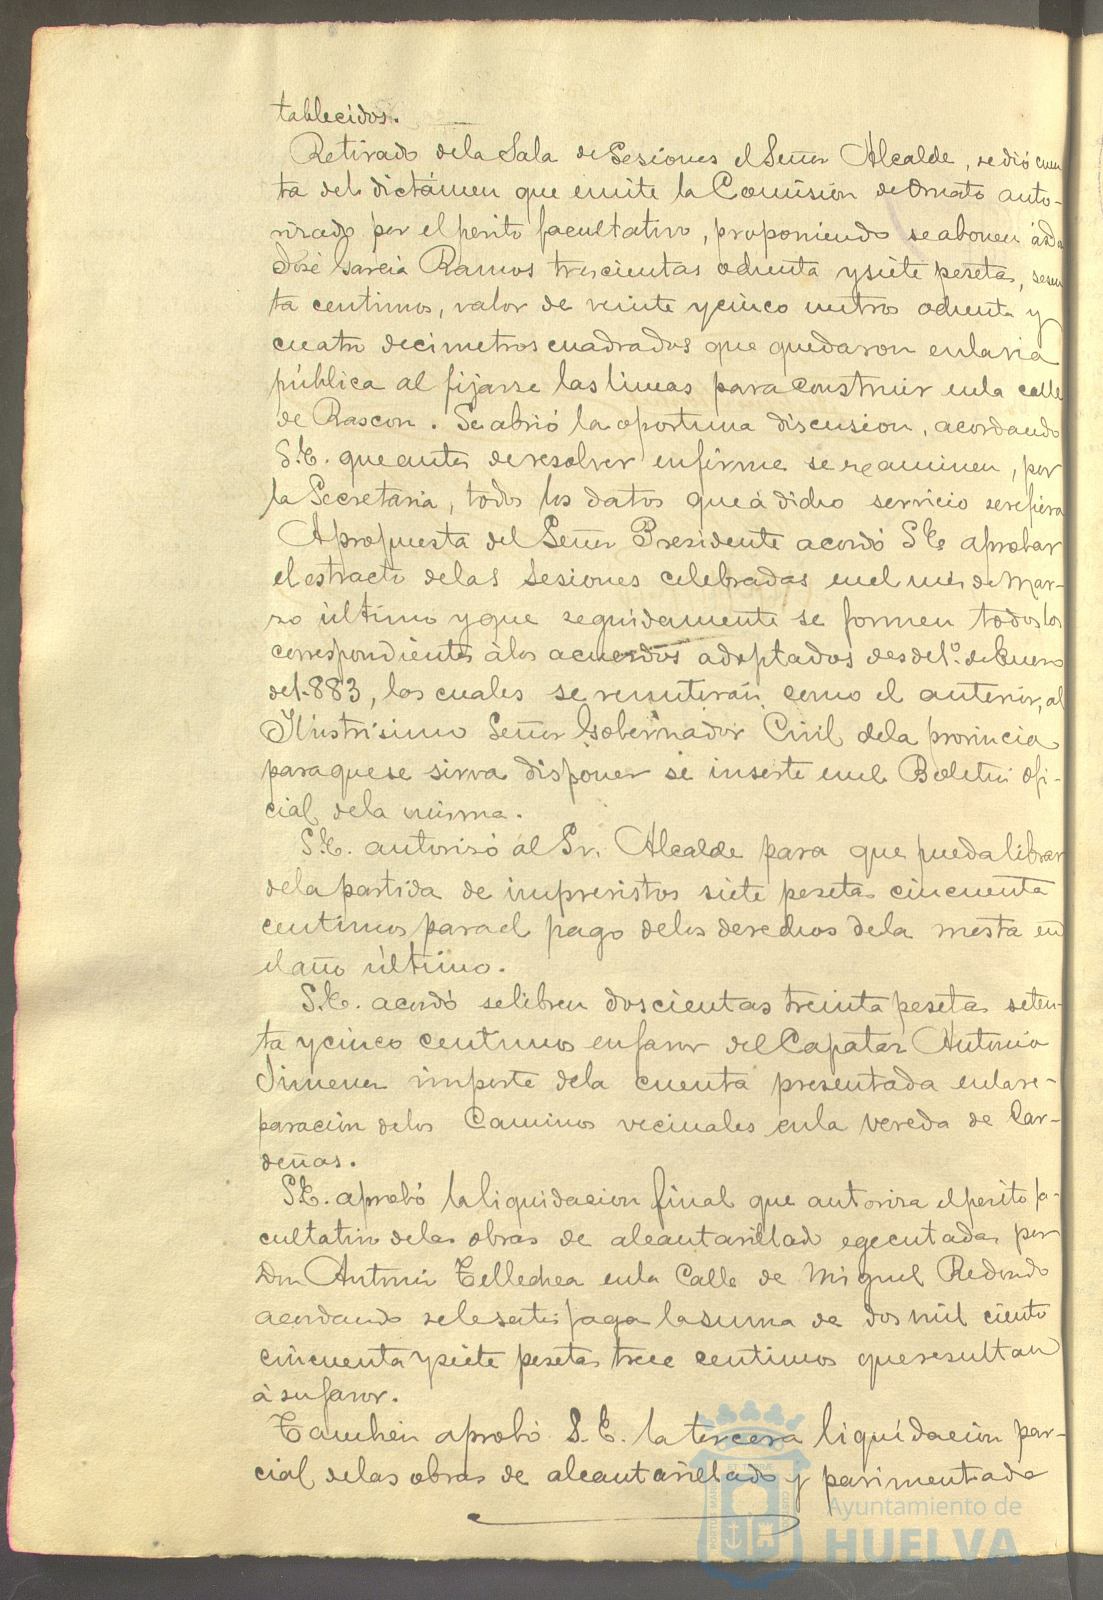 tablecidos.
Retirado dela Sala de Sesiones el Señor Alcalde, se dió cuen
ta del dictámen que emite la Comisión de Ornato auto-
rizado por el perito facultativo, proponiendo se abonen á Dn
José García Ramos trescientas ochenta y siete pesetas, sesen
ta centimos, valor de veinte y cinco metros ochenta y
cuatro decimetros cuadrados que quedaron en la via
pública al fijarse las lineas para construir en la calle
de Rascon. Se abrió la oportuna discusion, acordando
S.E. que antes de resolver en firme se examinen, por
la Secretaria, todos los datos que á dicho servicio se refiera
A propuesta del Señor Presidente acordó S.E. aprobar
el estracto de las sesiones celebradas en el mes de Mar-
zo último y que seguidamente se formen todos los
correspondientes á los acuerdos adoptados desde 1º. de Enero
de 1.883, los cuales se remitirán como el anterior, al
Ilustrísimo Señor Gobernador Civil de la provincia
para que se sirva disponer se inserte en el Boletin ofi-
cial de la misma.
S.E. autorizó al Sr. Alcalde para que pueda librar
de la partida de imprevistos siete pesetas cincuenta
centimos para el pago de los derechos de la mesta en
el año último.
S.E. acordó se libren doscientas treinta pesetas seten-
ta y cinco centimos en favor del Capataz Antonio
Jimenez importe de la cuenta presentada en la re-
paración de los Caminos vecinales en la vereda de Car-
deñas.
S.E. aprobó la liquidacion final que autoriza el perito fa-
cultativo de las obras de alcantarillado egecutadas por
Don Antonio Tellechea en la Calle de Miguel Redondo
acordando se le satisfaga la suma de dos mil ciento
cincuenta y siete pesetas trece centimos que resultan
á su favor.
Tambien aprobó S.E. la tercera liquidación par-
cial de las obras de alcantarillado y pavimentado
Ayuntamiento de
HUELVA